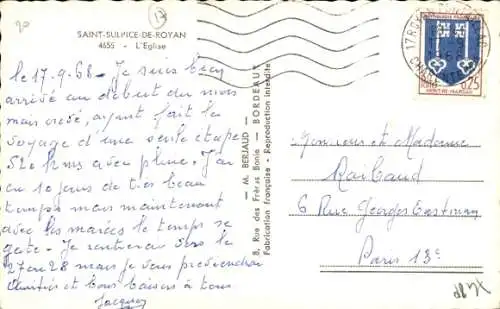 90
17
SAINT-SULPICE-DE-ROYAN
4655 - L'Eglise
le 17-9-68 - Je suis bien
arrivé au début du mois
mais crevé, ayant fait le
voyage d'une seule étape
520 kms avec pluie. J'ai
eu 10 jours de très beau
temps mais maintenant
avec les marées le temps se
gâte - Je rentrerai vers le
27 ou 28 mais je vous préviendrai
Amitiés et bons baisers à tous
Jacques
— M. BERJAUD —
8, Rue des Frères Bonie — BORDEAUX
Fabrication française - Reproduction interdite
17 ROYAN
0,25
MONT-DE-MARSAN
Monsieur et Madame
Raibaud
6 Rue Georges Eastman
Paris 13e